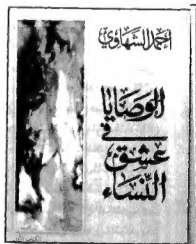 أحمد الشهاوي
الوصايا
في
عشق
النساء